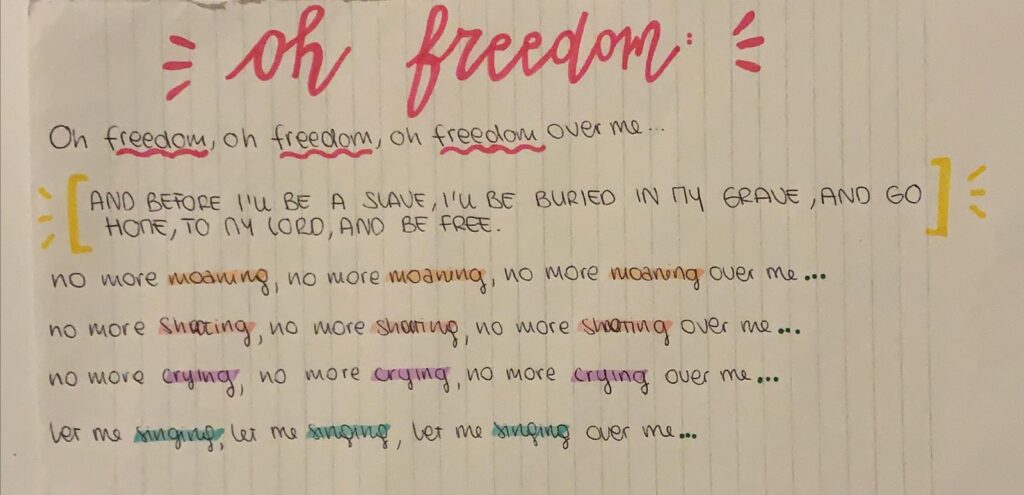 oh freedom:
Oh freedom, oh freedom, oh freedom over me...
[AND BEFORE I'LL BE A SLAVE, I'LL BE BURIED IN MY GRAVE, AND GO
HOME, TO MY LORD, AND BE FREE.]
no more moaning, no more moaning, no more moaning over me...
no more shooting, no more shooting, no more shooting over me...
no more crying, no more crying, no more crying over me...
let me singing, let me singing, let me singing over me...